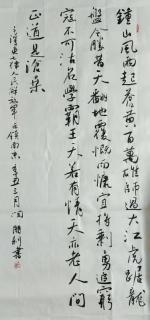 鍾山風雨起蒼黃百萬雄師過大江虎踞龍
盤今勝昔天翻地覆慨而慷宜將剩勇追窮
寇不可沽名學霸王天若有情天亦老人間
正道是滄桑
毛澤東七律人民解放軍佔領南京辛丑三月